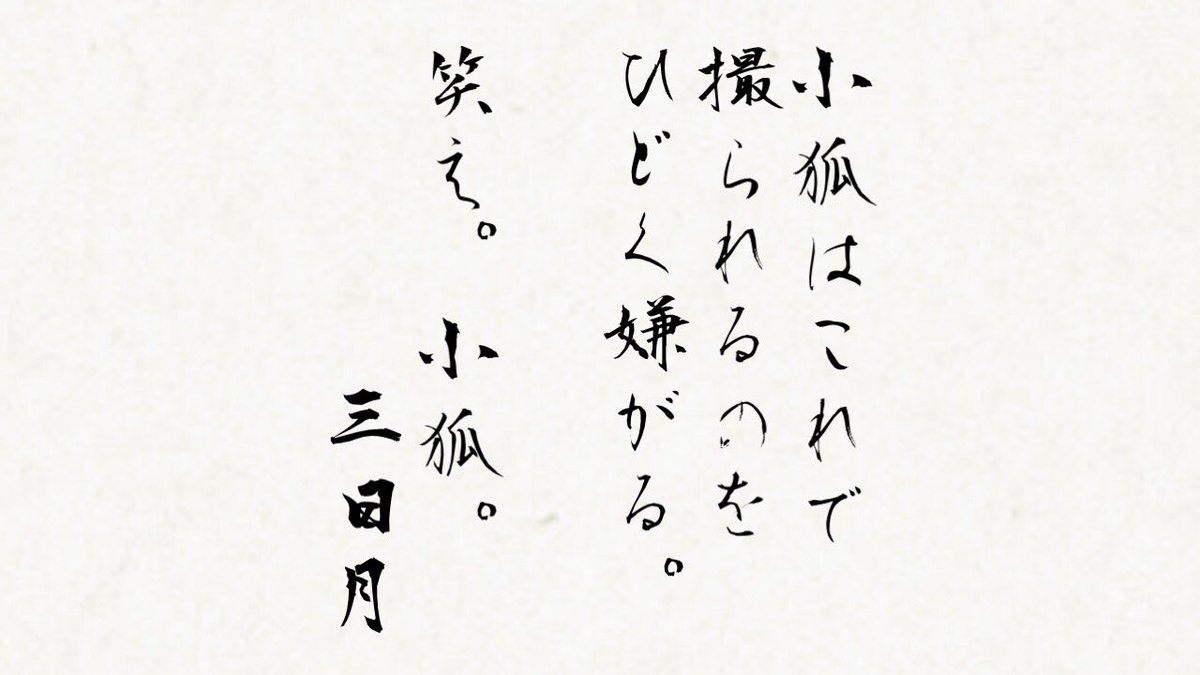 小狐はこれで
撮られるのを
ひどく嫌がる。
笑え。小狐。
三日月